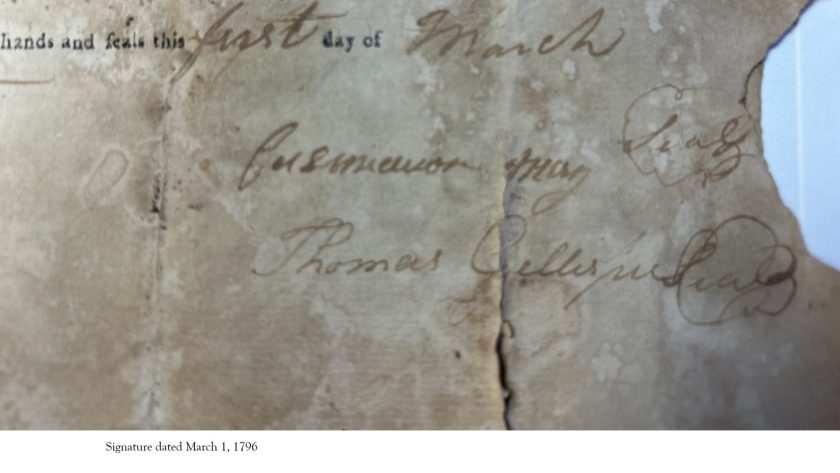 hands and seals this first day of March
may Seal
Thomas Gillespie Seal
Signature dated March 1, 1796